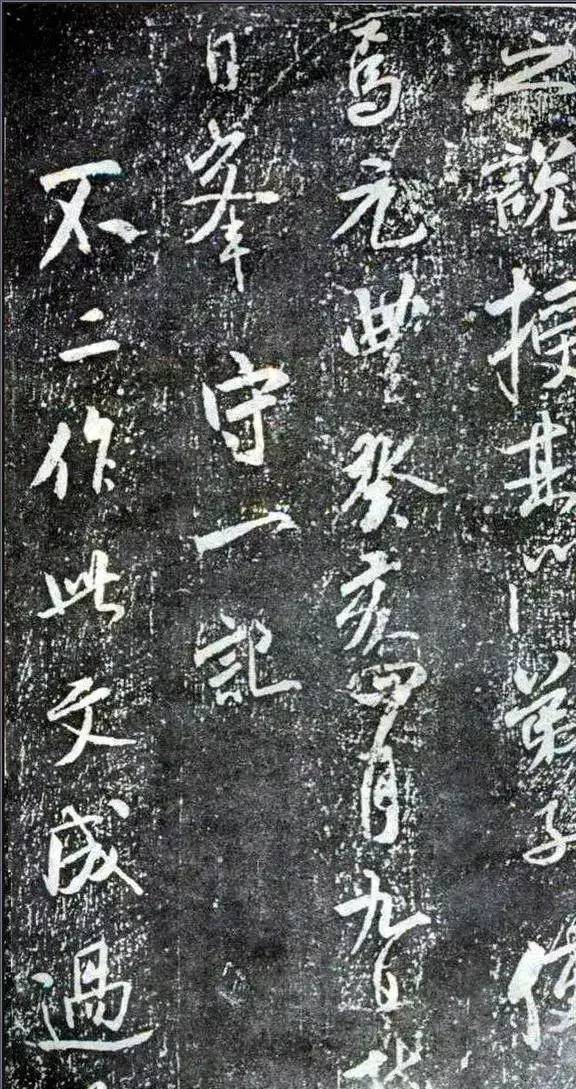 之說授其門弟子使
焉元豐癸亥四月九日
日峯守一記
不二作此文成過